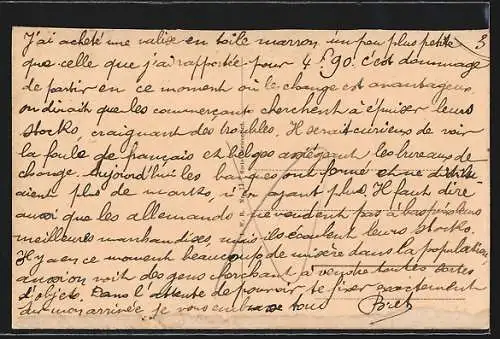 J'ai acheté une valise en toile marron un peu plus petite
que celle que j'ai rapportée pour 4f.90. c'est dommage
de partir en ce moment où le change est avantageux,
on dirait que les commerçants cherchent à épuiser leurs
stocks, craignant des troubles. Il serait curieux de voir
la foule de français et belges assiégeant les bureaux de
change. Aujourd'hui les banques ont fermé et ne
aient plus de marks, n'en ayant plus. Il faut dire
aussi que les allemands ne vendent pas à bas prix leurs
meilleures marchandises, mais ils écoulent leurs stocks.
Il y a en ce moment beaucoup de misère dans la population,
aussi on voit des gens cherchant à vendre toutes sortes
d'objets. Dans l'attente de pouvoir te fixer exactement
sur mon arrivée, je vous embrasse tous